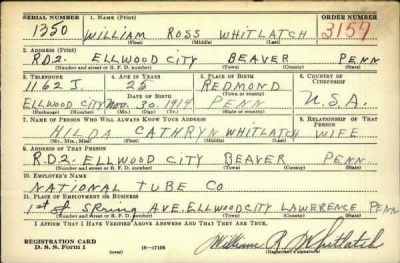 SERIAL NUMBER 1. NAME (Print) ORDER NUMBER
1350 WILLIAM ROSS WHITLATCH 3157
(First) (Middle) (Last)
2. ADDRESS (Print)
R.D.2. ELLWOOD CITY BEAVER PENN
(Number and street or R. F. D. number) (Town) (County) (State)
3. TELEPHONE 4. AGE IN YEARS 5. PLACE OF BIRTH 6. COUNTRY OF CITIZENSHIP
1162 J 25 REDMOND
DATE OF BIRTH (Town or county)
ELLWOOD CITY NOV. 30. 1914 PENN U.S.A.
(Exchange) (Number) (Mo.) (Day) (Yr.) (State or country)
7. NAME OF PERSON WHO WILL ALWAYS KNOW YOUR ADDRESS 8. RELATIONSHIP OF THAT PERSON
HILDA CATHRYN WHITLATCH WIFE
(Mr., Mrs., Miss) (First) (Middle) (Last)
9. ADDRESS OF THAT PERSON
R.D.2. ELLWOOD CITY BEAVER PENN
(Number and street or R. F. D. number) (Town) (County) (State)
10. EMPLOYER'S NAME
NATIONAL TUBE CO
11. PLACE OF EMPLOYMENT OR BUSINESS
1st & SPring AVE. ELLWOODCITY LAWERENCE PENN
(Number and street or R. F. D. number) (Town) (County) (State)
I AFFIRM THAT I HAVE VERIFIED ABOVE ANSWERS AND THAT THEY ARE TRUE.
REGISTRATION CARD
D. S. S. Form 1 16—17105 William R. Whitlatch
(Registrant's signature)